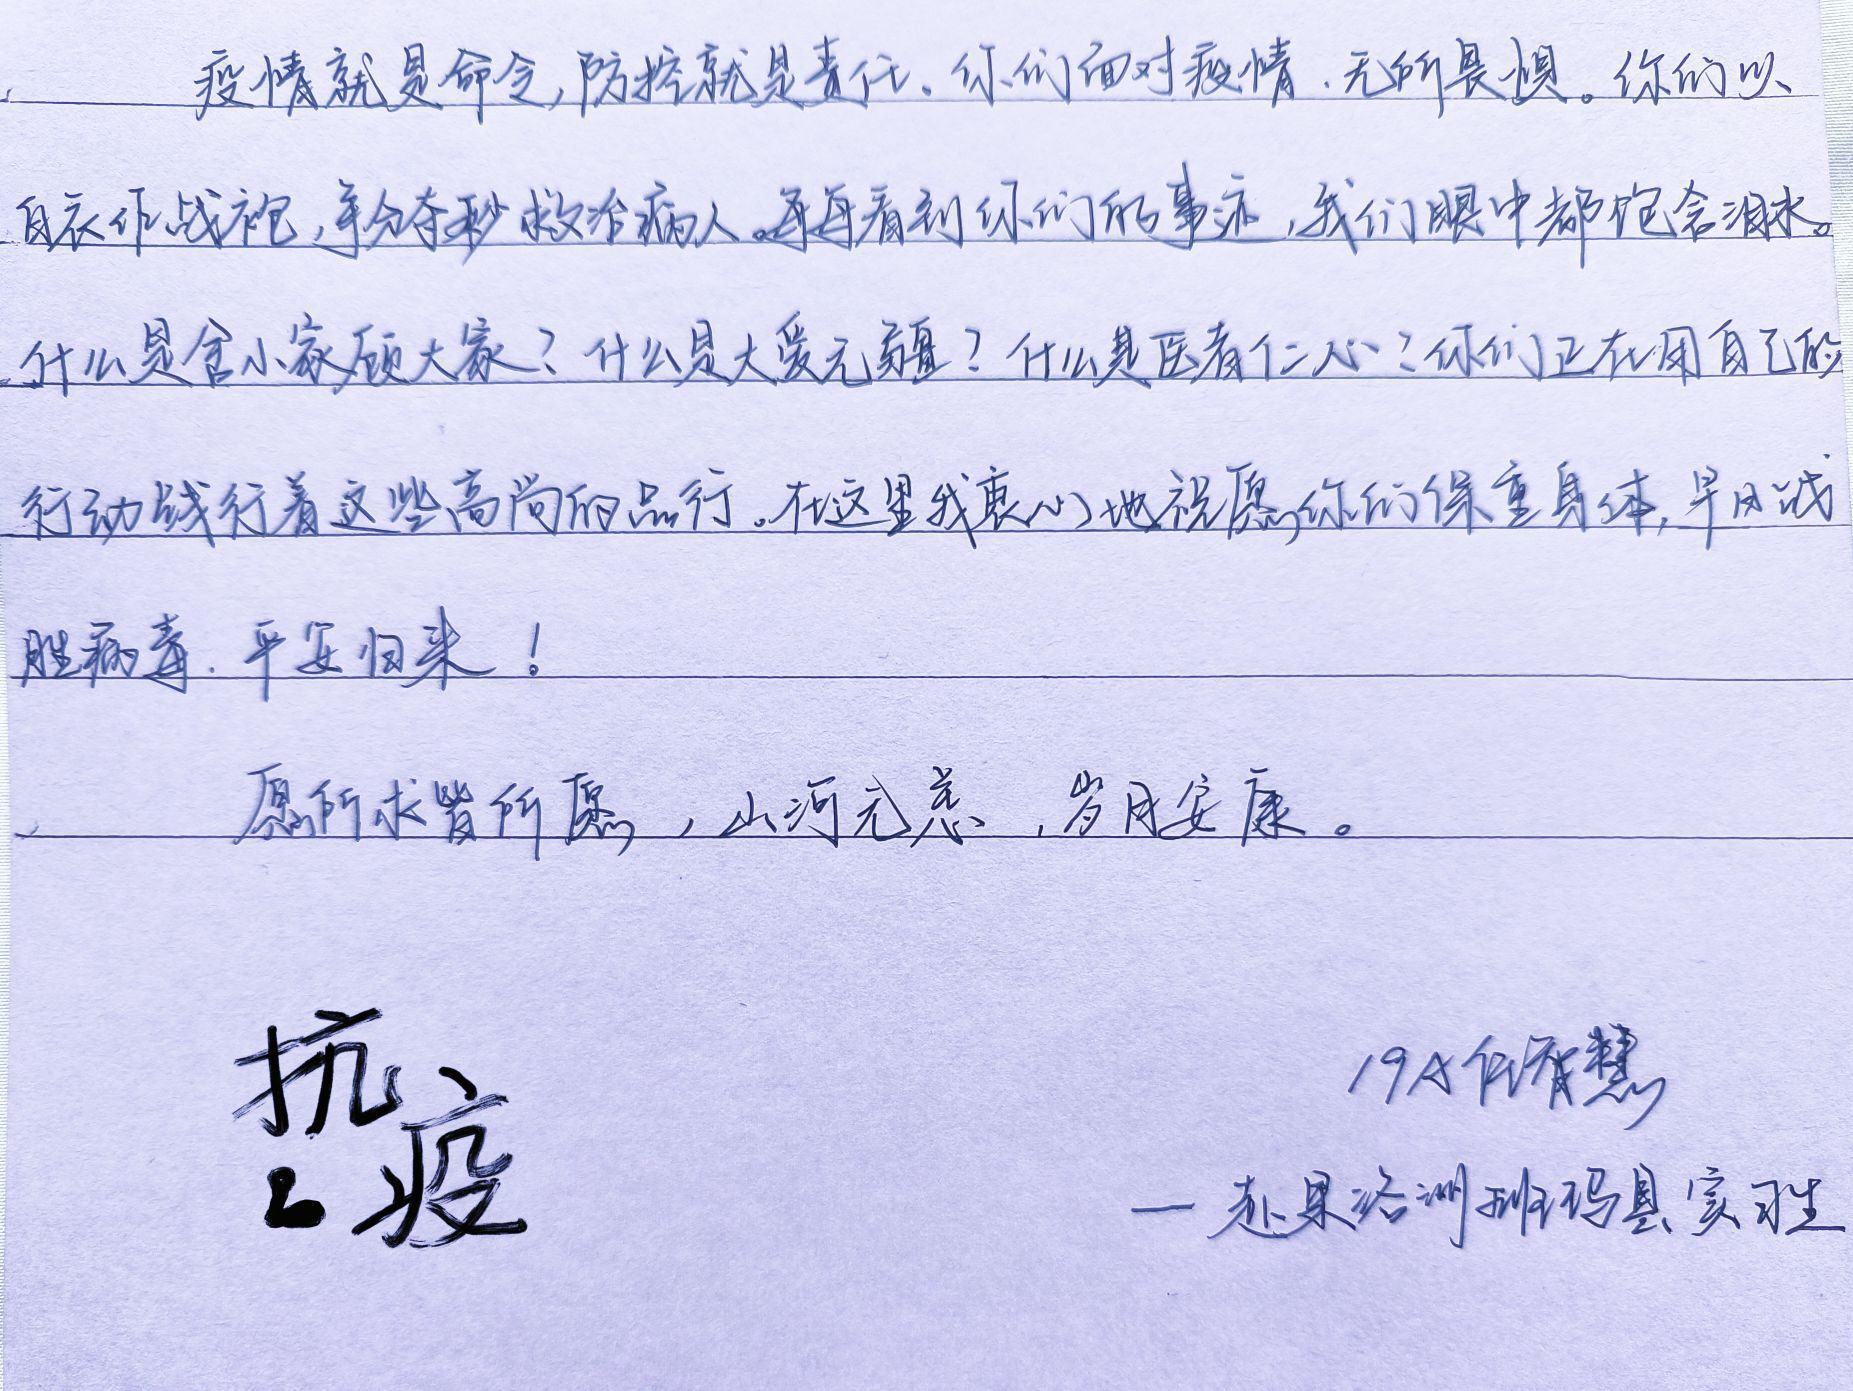 疫情就是命令,防控就是责任。你们面对疫情.无所畏惧。你们以
白衣作战袍,争分夺秒救治病人。每每看到你们的事迹,我们眼中都饱含泪水。
什么是舍小家顾大家?什么是大爱无疆?什么是医者仁心?你们正在用自己的
行动践行着这些高尚的品行。在这里我衷心地祝愿你们保重身体,早日战
胜病毒.平安归来!
愿所求皆所愿,山河无恙,岁月安康。
抗疫
19A任有慧
一赴果洛洲班玛县实习生